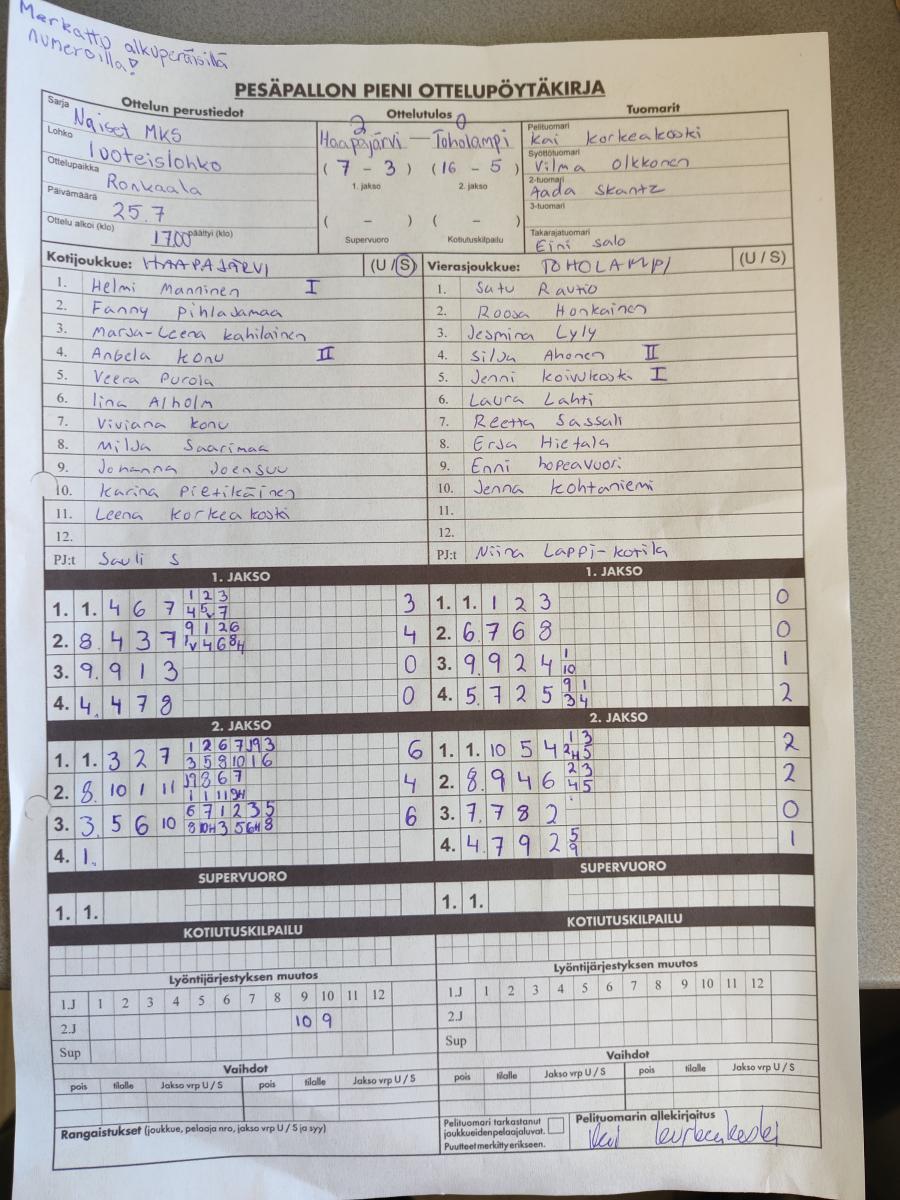 Merkattu alkuperäisillä
numeroilla!
PESÄPALLON PIENI OTTELUPÖYTÄKIRJA
Ottelun perustiedot
Sarja Naiset MKS
Lohko luoteislohko
Ottelupaikka Ronkaala
Päivämäärä 25.7
Ottelu alkoi (klo) 17.00 päättyi (klo)
Ottelutulos
2 0
Haapajärvi – Toholampi
( 7 - 3 ) (16 - 5 )
1. jakso 2. jakso
( – ) ( – )
Supervuoro Kotiutuskilpailu
Tuomarit
Pelituomari Kai Korkeakoski
Syöttötuomari Vilma Olkkonen
2-tuomari Aada Skantz
3-tuomari
Takarajatuomari Eini Salo
Kotijoukkue: HAAPAJÄRVI (U / S)
1. Helmi Manninen I
2. Fanny Pihlajamaa
3. Marja-Leena Kahilainen
4. Anbela Konu II
5. Veera Purola
6. Iina Alholm
7. Viviana Konu
8. Milja Saarimaa
9. Johanna Joensuu
10. Karina Pietikäinen
11. Leena Korkeakoski
12.
PJ:t Sauli S
Vierasjoukkue: TOHOLAMPI (U / S)
1. Satu Rautio
2. Roosa Honkainen
3. Jesmina Lyly
4. Silja Ahonen II
5. Jenni Koivukoski I
6. Laura Lahti
7. Reetta Sassali
8. Erja Hietala
9. Enni hopeavuori
10. Jenna Kohtaniemi
11.
12.
PJ:t Niina Lappi-Kotila
1. JAKSO
1. 1. 4 6 7 3
2. 8. 4 3 7 4
3. 9. 9 1 3 0
4. 4. 4 7 8 0
1. JAKSO
1. 1. 1 2 3 0
2. 6. 7 6 8 0
3. 9. 9 2 4 1 10 1
4. 5. 7 2 5 9 1 3 4 2
2. JAKSO
1. 1. 3 2 7 6
2. 8. 10 1 11 4
3. 3. 5 6 10 6
4. 1.
2. JAKSO
1. 1. 10 5 4 2
2. 8. 9 4 6 2 3 4 5 2
3. 7. 7 8 2 0
4. 4. 7 9 2 5 9 1
SUPERVUORO
1. 1.
SUPERVUORO
1. 1.
KOTIUTUSKILPAILU
KOTIUTUSKILPAILU
Lyöntijärjestyksen muutos
1.J 1 2 3 4 5 6 7 8 9 10 11 12
2.J 10 9
Sup
Lyöntijärjestyksen muutos
1.J 1 2 3 4 5 6 7 8 9 10 11 12
2.J
Sup
Vaihdot
pois tilalle Jakso vrp U / S pois tilalle Jakso vrp U / S
Vaihdot
pois tilalle Jakso vrp U / S pois tilalle Jakso vrp U / S
Rangaistukset (joukkue, pelaaja nro, jakso vrp U / S ja syy)
Pelituomari tarkastanut
joukkueiden pelaajaluvat.
Puutteet merkitty erikseen.
Pelituomarin allekirjoitus
Kai Korkeakoski